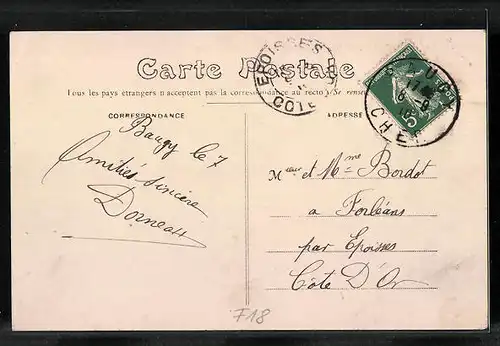 Carte Postale
Tous les pays étrangers n'acceptent pas la correspondance au recto (Se renseigner
CORRESPONDANCE
ADRESSE
EPOISSES
COTE
CHER
5
Baugy le 7
Amitiés sincère
Dorneau
Mr et Mme Bordot
a Forléans
par Epoisses
Côte D'Or
F18